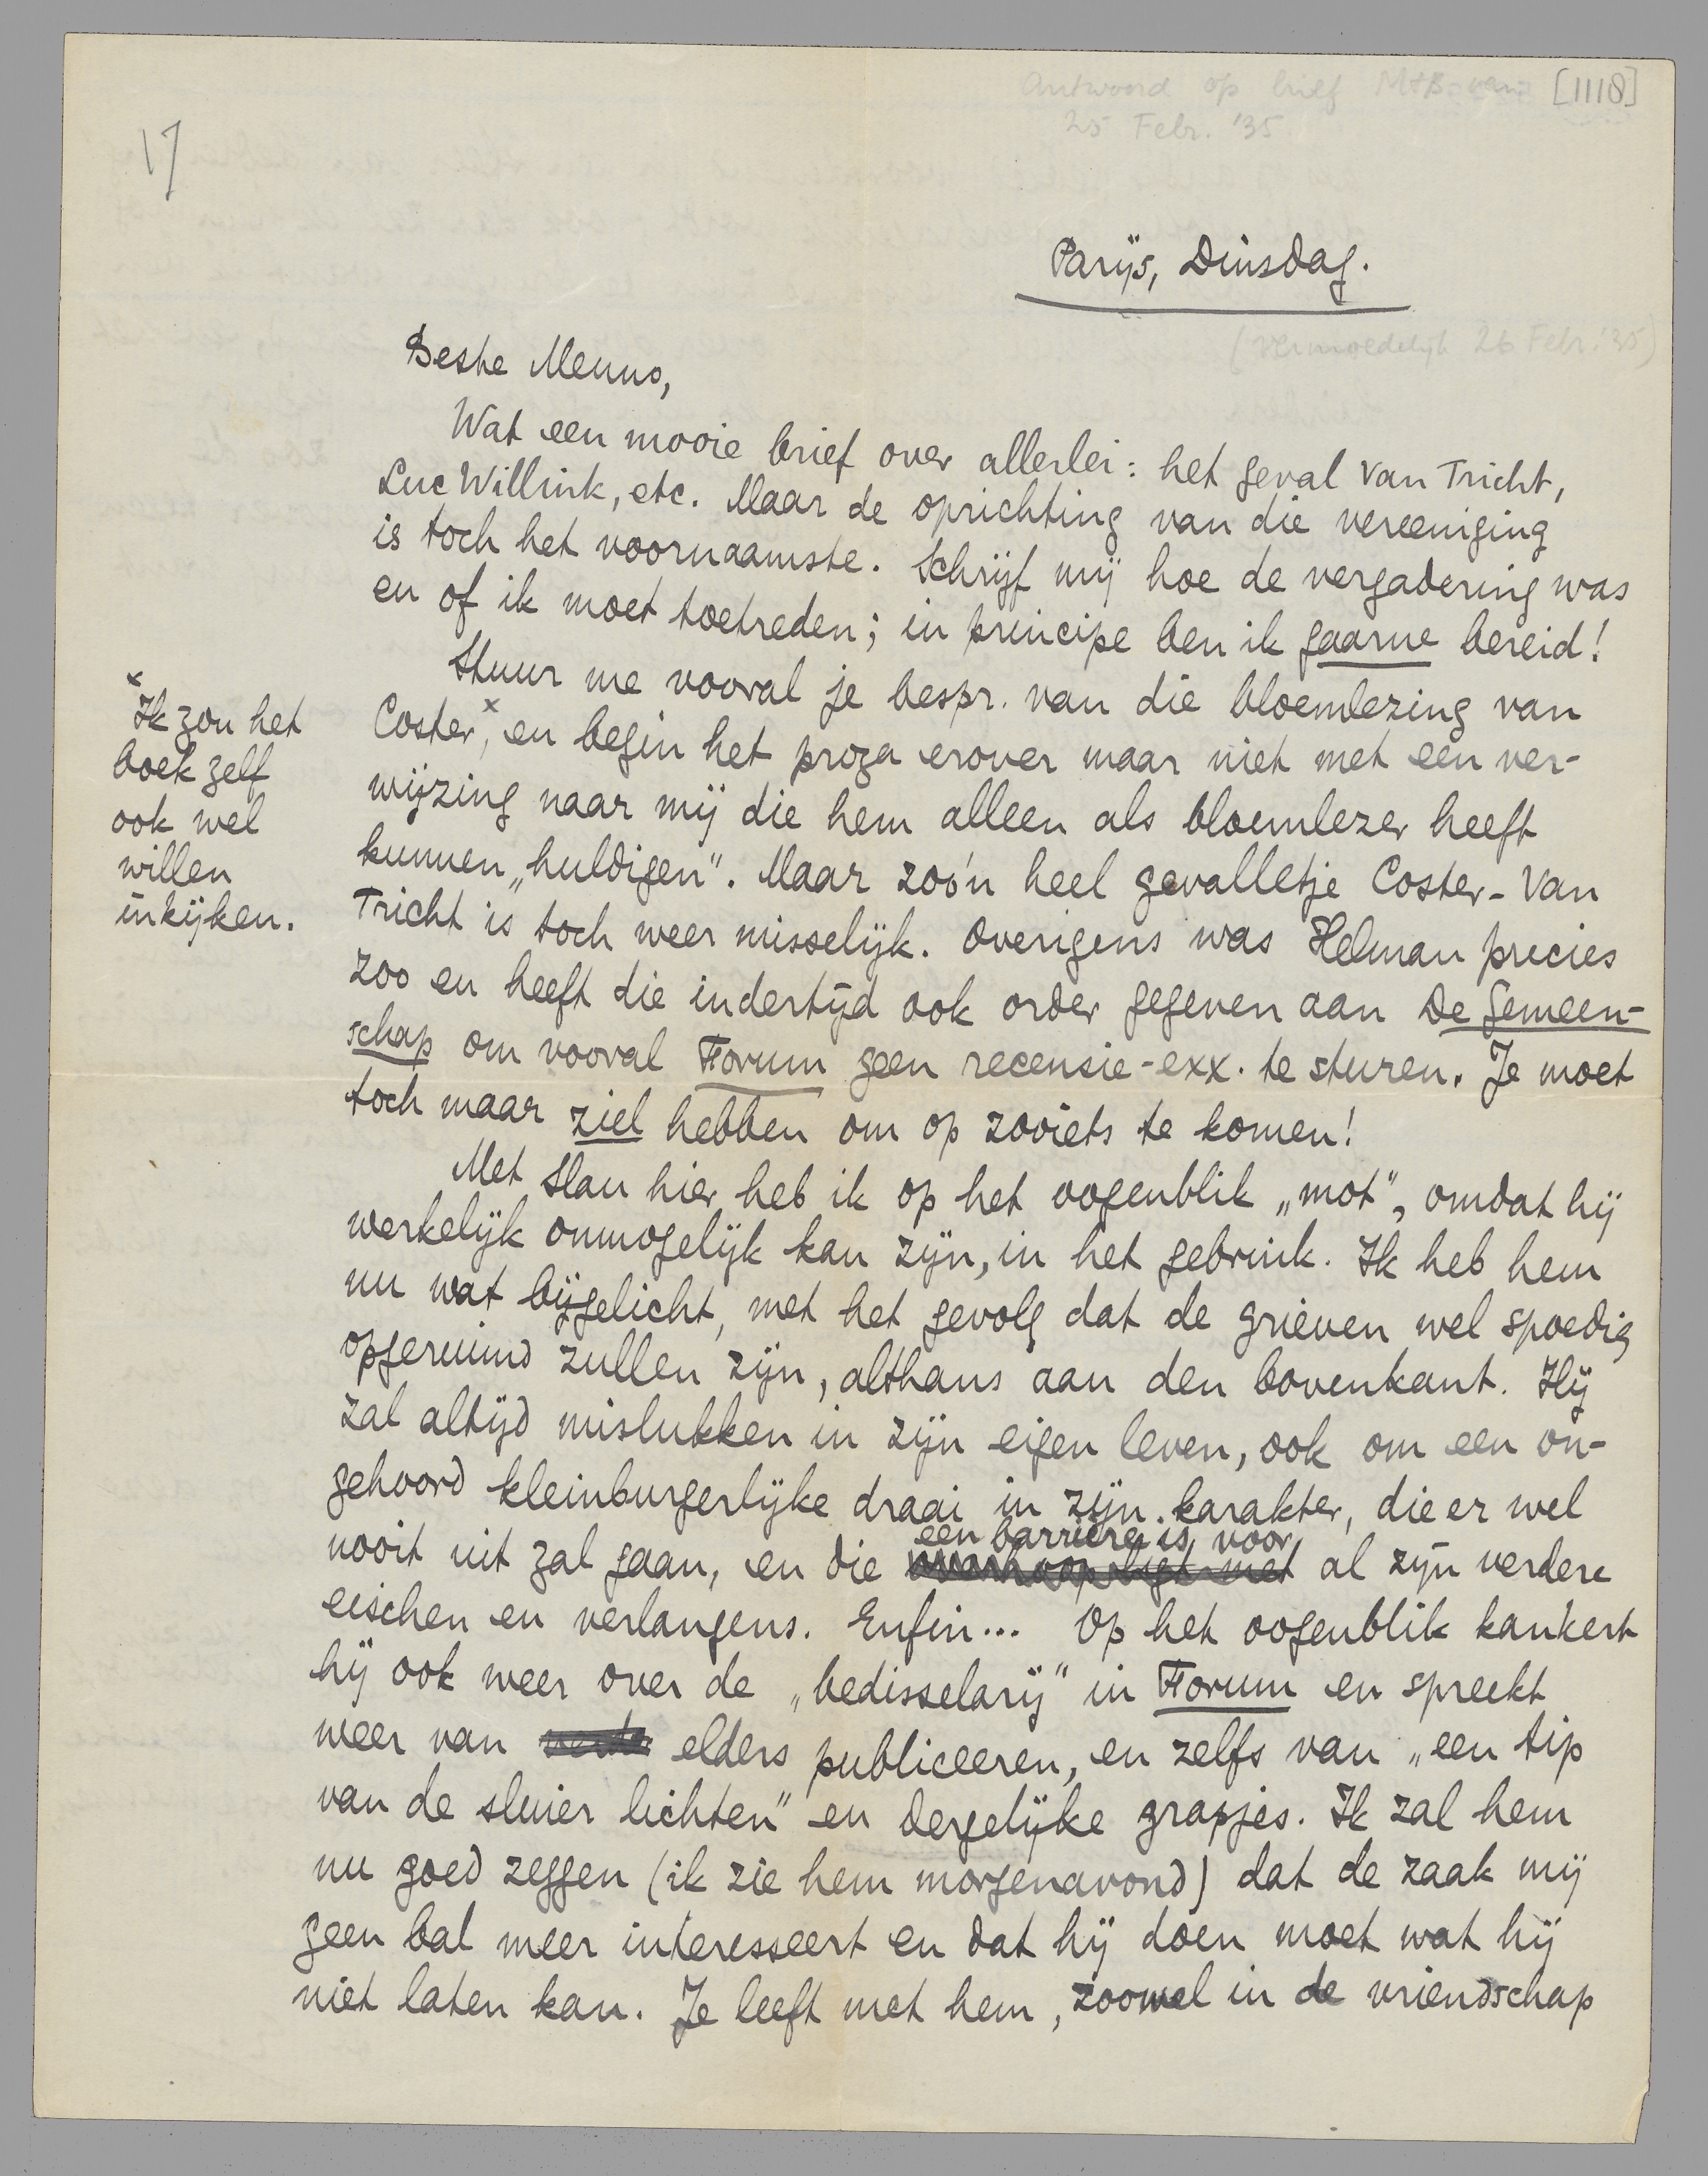 Antwoord op brief MtB van [1118]
25 Febr. '35.
17
Parijs, Dinsdag.
(vermoedelijk 26 Febr. '35)
Beste Menno,
Wat een mooie brief over allerlei: het geval Van Tricht,
Luc Willink, etc. Maar de oprichting van die vereeniging
is toch het voornaamste. Schrijf mij hoe de vergadering was
en of ik moet toetreden; in principe ben ik gaarne bereid!
Stuur me vooral je bespr. van die bloemlezing van
Coster,x en begin het proza erover maar niet met een ver-
wijzing naar mij die hem alleen als bloemlezer heeft
kunnen „huldigen". Maar zoo'n heel gevalletje Coster-Van
Tricht is toch weer misselijk. Overigens was Helman precies
zoo en heeft die indertijd ook order gegeven aan De Gemeen-
schap om vooral Forum geen recensie-exx. te sturen. Je moet
toch maar ziel hebben om op zooiets te komen!
x Ik zou het
boek zelf
ook wel
willen
inkijken.
Met Slau hier heb ik op het oogenblik „mot", omdat hij
werkelijk onmogelijk kan zijn, in het gebruik. Ik heb hem
nu wat bijgelicht, met het gevolg dat de grieven wel spoedig
opgeruimd zullen zijn, althans aan den bovenkant. Hij
zal altijd mislukken in zijn eigen leven, ook om een on-
gehoord kleinburgerlijke draai in zijn karakter, die er wel
een barrière is voor
nooit uit zal gaan, en die overhoop ligt met al zijn verdere
eischen en verlangens. Enfin... Op het oogenblik kankert
hij ook weer over de „bedisselarij" in Forum en spreekt
weer van elders publiceeren, en zelfs van „een tip
van de sluier lichten" en dergelijke grapjes. Ik zal hem
nu goed zeggen (ik zie hem morgenavond) dat de zaak mij
geen bal meer interesseert en dat hij doen moet wat hij
niet laten kan. Je leeft met hem, zoowel in de vriendschap